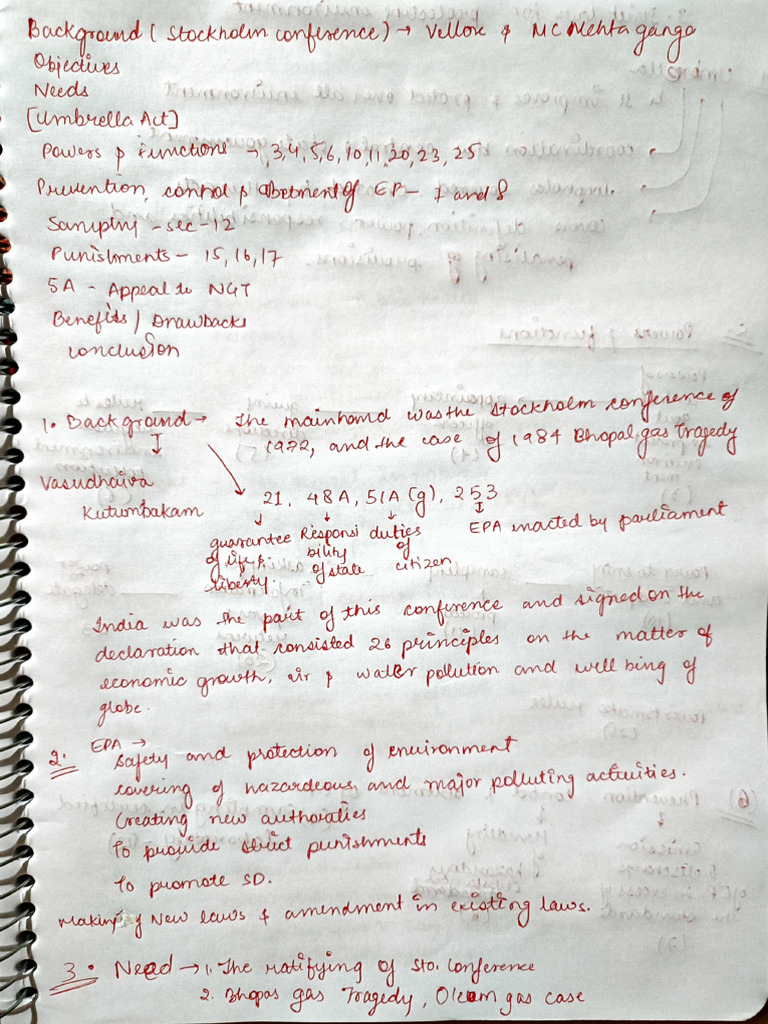 Background (Stockholm conference) → Vellore & MC Mehta ganga
Objectives
Needs
[Umbrella Act]
Powers & Functions → 3,4,5,6,10,11,20,23,25
Prevention, control & Abetment of EP - 7 and 8
Sampling - sec - 12
Punishments - 15,16,17
5A - Appeal to NGT
Benefits / Drawbacks
Conclusion
1. Background → The main was the Stockholm conference of
1972, and the case of 1984 Bhopal gas Tragedy
Vasudhaiva
Kutumbakam
21, 48A, 51A (g), 253
guarantee of life & liberty.
Responsibility of state
duties of citizen
EPA enacted by parliament
India was the part of this conference and signed on the
declaration that consisted 26 principles on the matter of
economic growth, air & water pollution and well being of
globe.
2. EPA →
Safety and protection of environment
covering of hazardeous and major polluting activities.
Creating new authorities
To provide strict punishments
To promote SD.
Making of New laws & amendment in existing laws.
3. Need → 1. The ratifying of Sto. Conference
2. Bhopas gas Tragedy, Oleum gas case